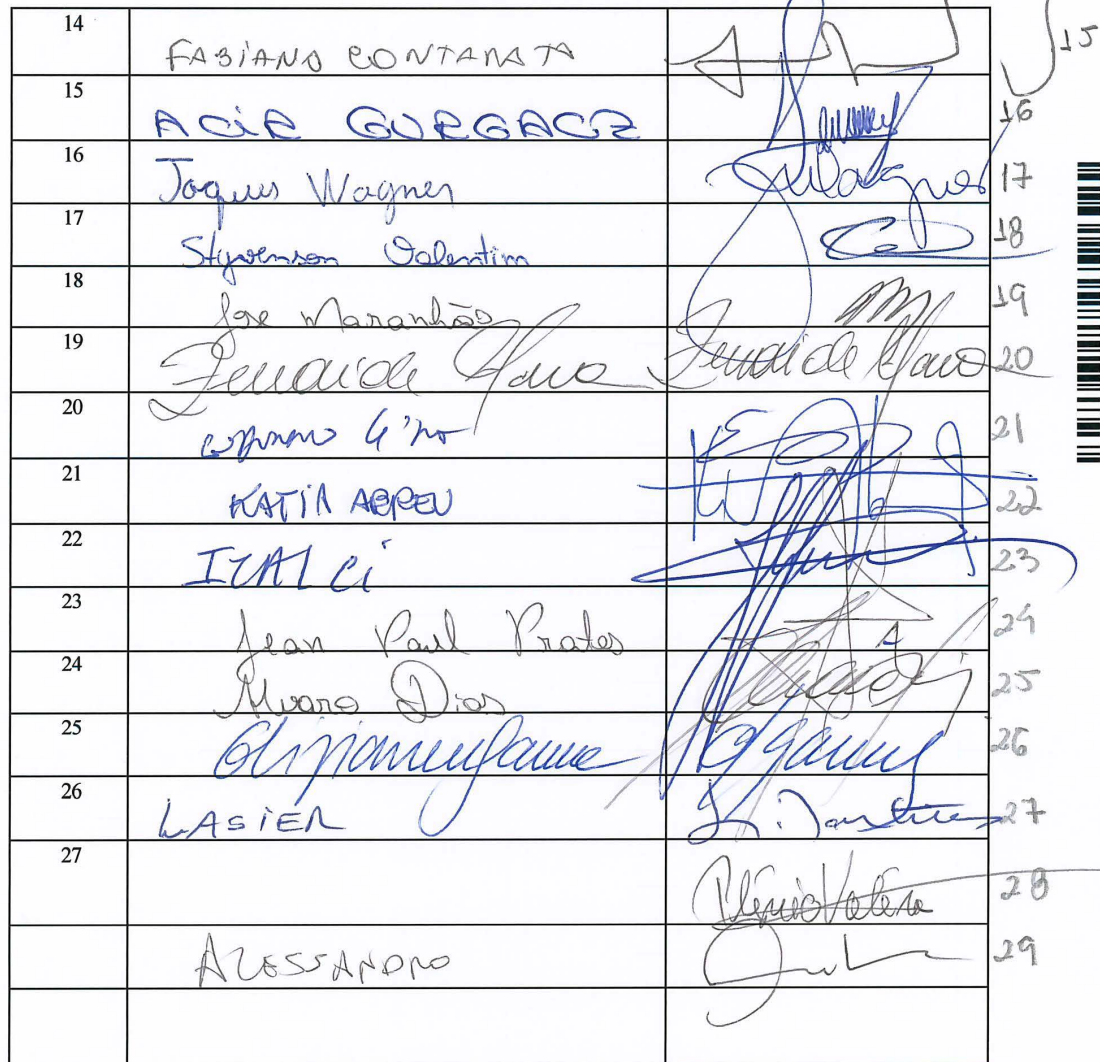 14 FABIANO CONTARATA 15
15 ACIR GURGACZ 16
16 Jaques Wagner Wagner 17
17 Styvenson Valentim 18
18 José Maranhão 19
19 Zenaide Maia Zenaide Maia 20
20 21
21 KATIA ABREU 22
22 IZALCI 23
23 Jean Paul Prates 24
24 Alvaro Dias 25
25 26
26 LASIER 27
27 Plínio Valério 28
ALESSANDRO 29